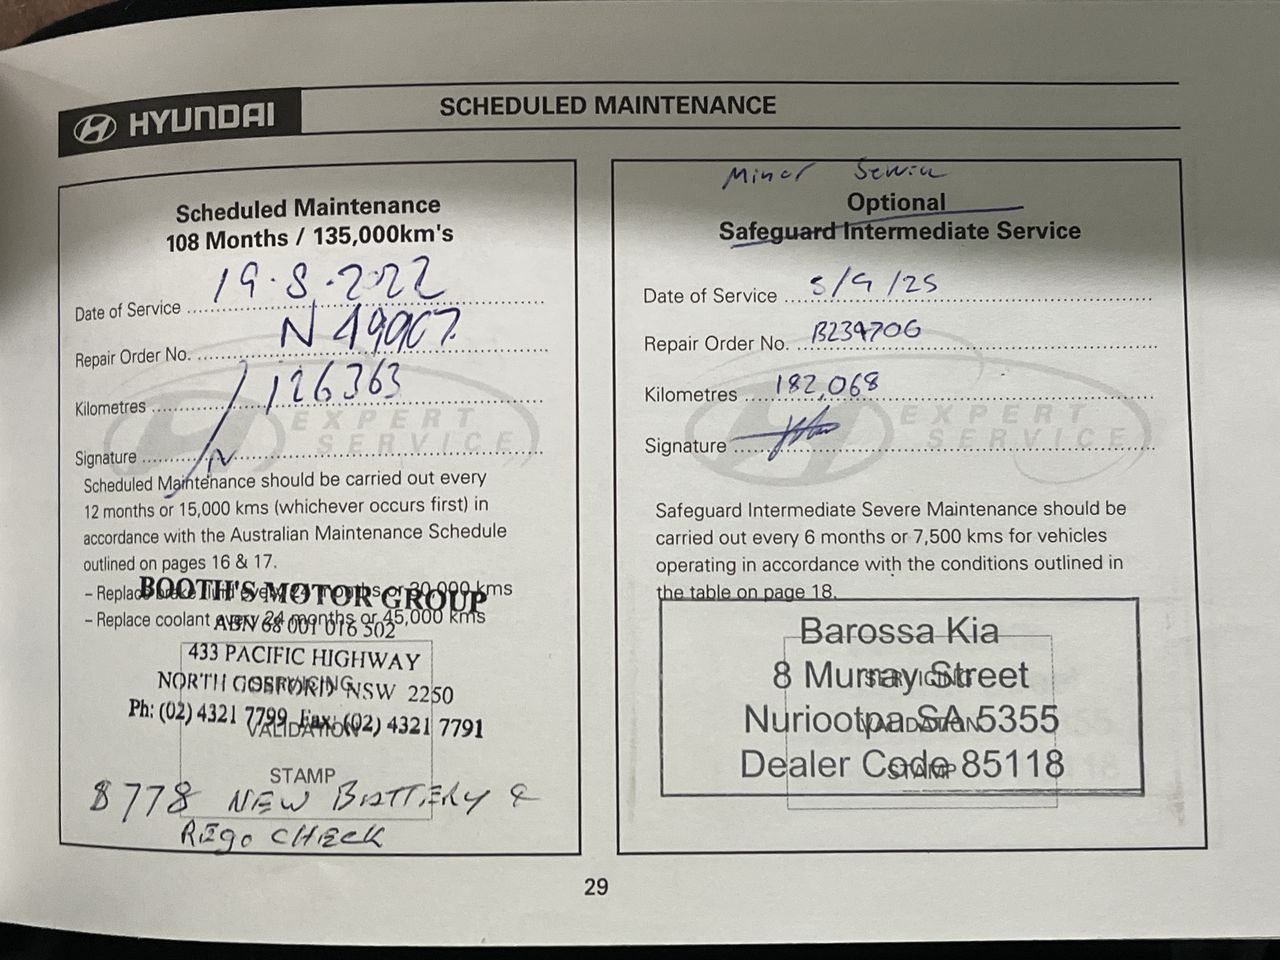 HYUNDAI
SCHEDULED MAINTENANCE
Scheduled Maintenance
108 Months / 135,000km's
Date of Service 19.8.2022
Repair Order No. N 49907
Kilometres 126363
Signature
EXPERT
SERVICE
Scheduled Maintenance should be carried out every
12 months or 15,000 kms (whichever occurs first) in
accordance with the Australian Maintenance Schedule
outlined on pages 16 & 17.
– Replace brake fluid every 24 months or 30,000 kms
– Replace coolant every 24 months or 45,000 kms
BOOTH'S MOTOR GROUP
ABN 68 001 016 502
433 PACIFIC HIGHWAY
NORTH GOSFORD NSW 2250
Ph: (02) 4321 7799 Fax: (02) 4321 7791
SERVICING
VALIDATION
STAMP
$778 NEW BATTERY &
REgo CHECK
Minor Service
Optional
Safeguard Intermediate Service
Date of Service 5/9/25
Repair Order No. B234706
Kilometres 182,068
Signature
EXPERT
SERVICE
Safeguard Intermediate Severe Maintenance should be
carried out every 6 months or 7,500 kms for vehicles
operating in accordance with the conditions outlined in
the table on page 18.
Barossa Kia
8 Murray Street
Nuriootpa SA 5355
Dealer Code 85118
SERVICING
VALIDATION
STAMP
29